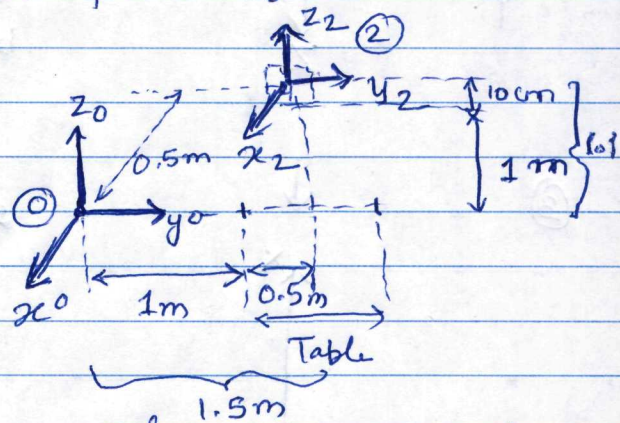 z₂ ②
y₂
10 cm
z₀
0.5m
x₂
1 m
{0}
⓪
y₀
x₀
1m
0.5m
Table
1.5m